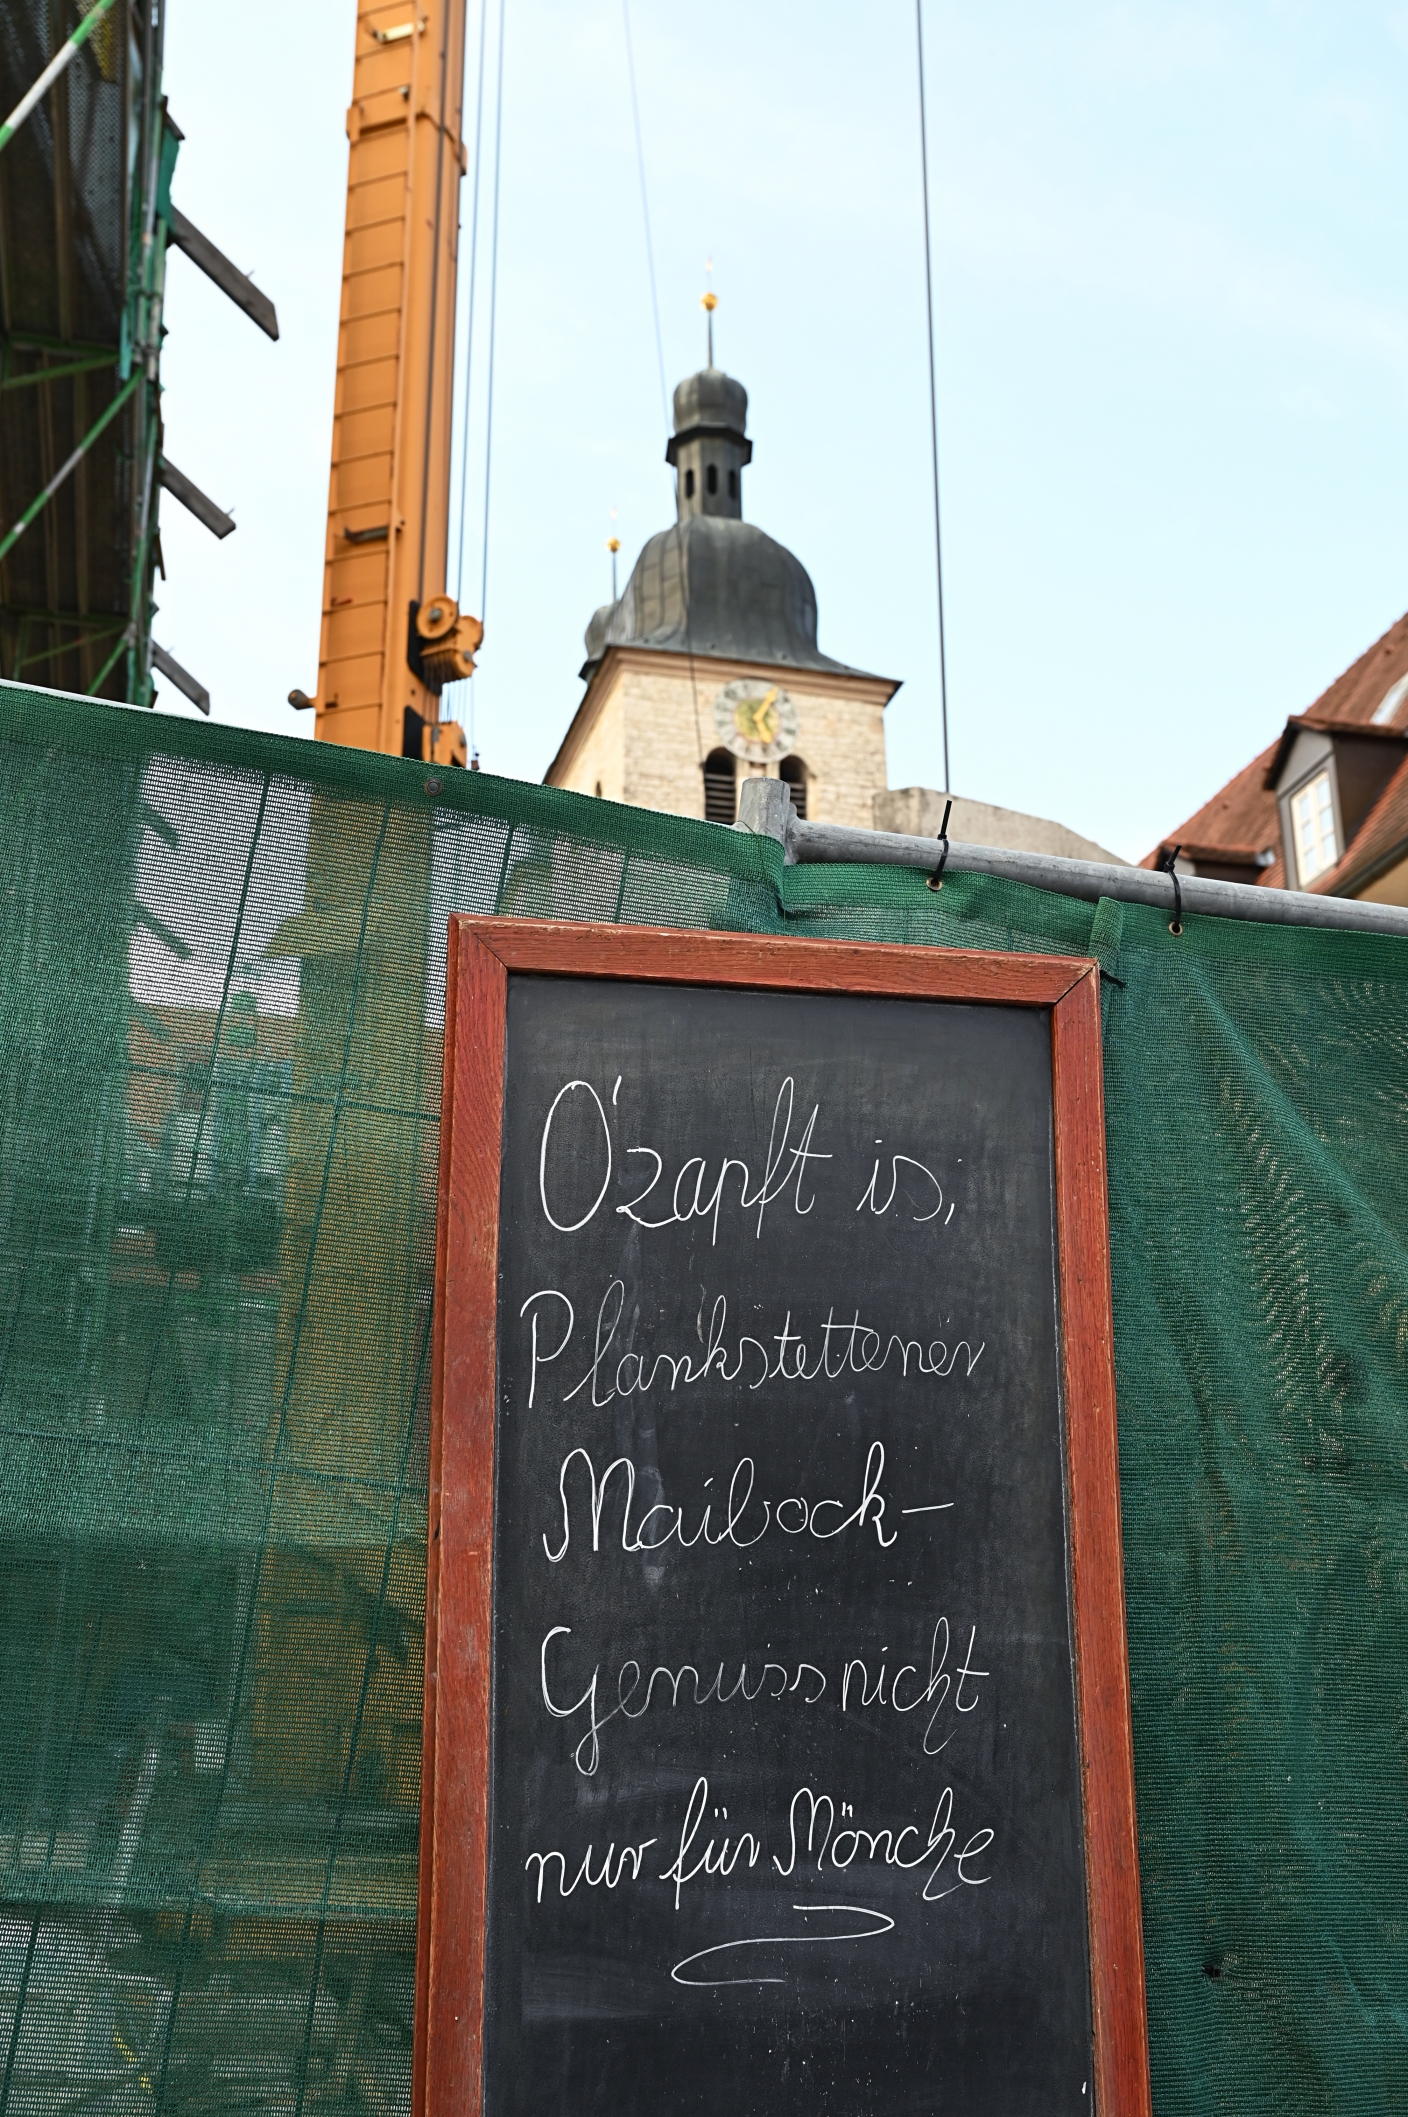 O'zapft is,
Plankstettener
Maibock-
Genuss nicht
nur für Mönche